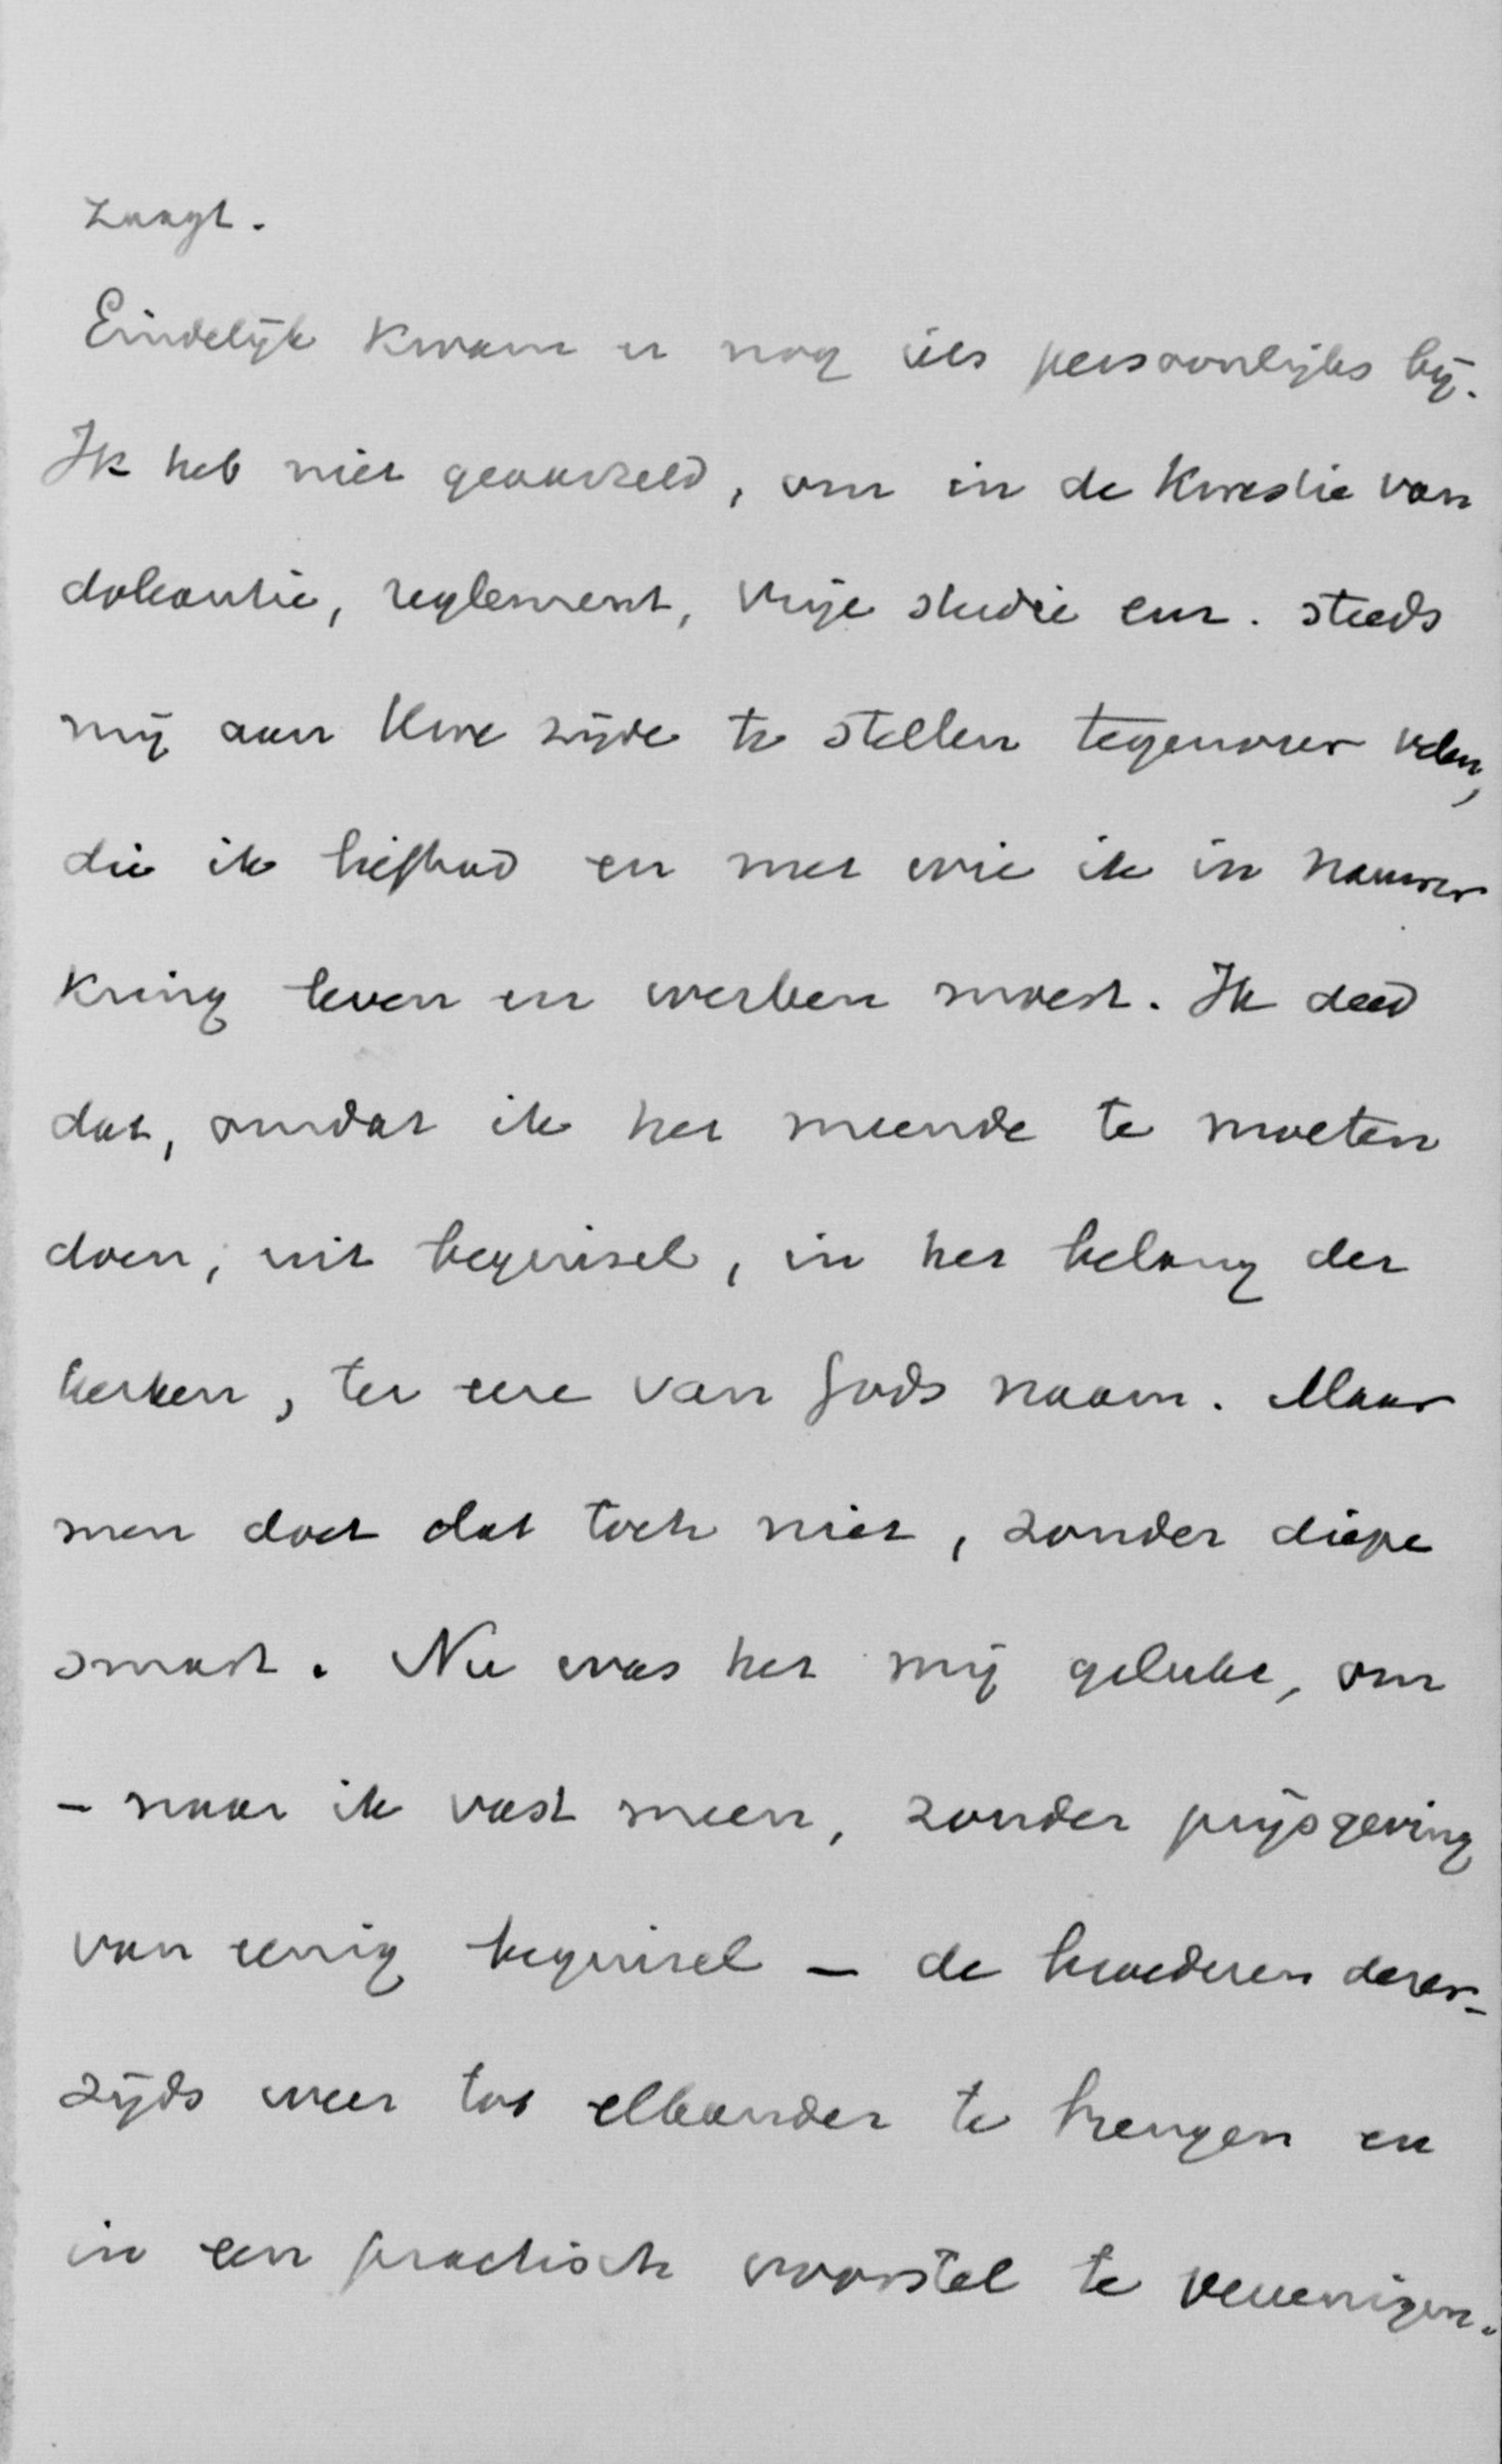 zaagt.
Eindelijk kwam er nog iets persoonlijks bij.
Ik heb niet geaarzeld, om in de kwestie van
doleantie, reglement, vrije studie enz. steeds
mij aan Uwe zijde te stellen tegenover velen,
die ik liefhad en met wie ik in nauwer
kring leven en werken moest. Ik deed
dat, omdat ik het meende te moeten
doen, uit beginsel, in het belang der
kerken, ter eere van Gods naam. Maar
men doet dat toch niet, zonder diepe
smart. Nu was het mij gelukt, om
- naar ik vast meen, zonder prijsgeving
van eenig beginsel - de broederen derer-
zijds weer tot elkander te brengen en
in een practisch voorstel te vereenigen.